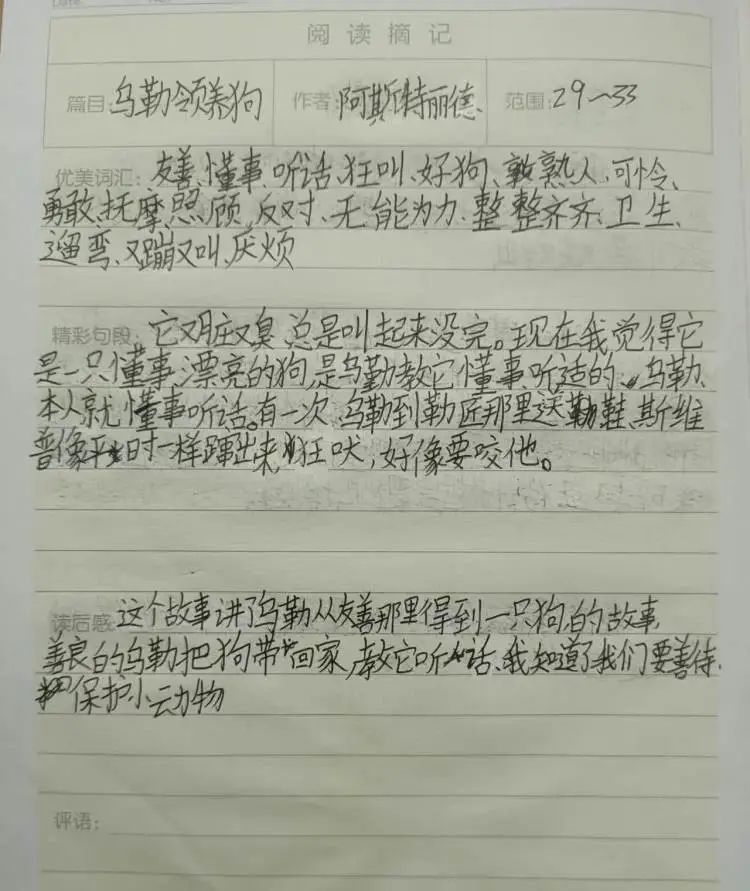 阅读摘记
篇目:乌勒领养狗 作者:阿斯特丽德 范围:29~33
优美词汇: 友善、懂事、听话、狂叫、好狗、敦熟人、可怜、
勇敢、抚摩、照顾、反对、无能为力、整整齐齐、卫生、
遛弯、又蹦又叫、厌烦
精彩句段: 它又脏又臭,总是叫起来没完。现在我觉得它
是一只懂事、漂亮的狗,是乌勤教它懂事、听适的。乌勒、
本人就懂事听话。有一次,乌勒到勒匠那里送勒鞋,斯维
普像平时一样蹿出来,狂吠,好像要咬他。
读后感: 这个故事讲了乌勒从友善那里得到一只狗的故事,
善良的乌勒把狗带回家,教它听话、我知道了我们要善待、
保护小动物
评语: